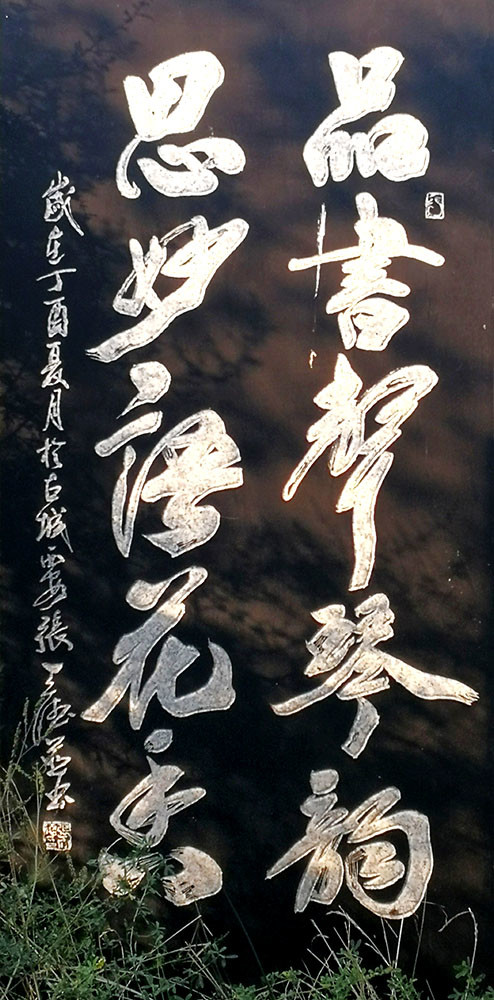 品書聲琴韻
思妙語花香
歲在丁酉夏月於古城西安張